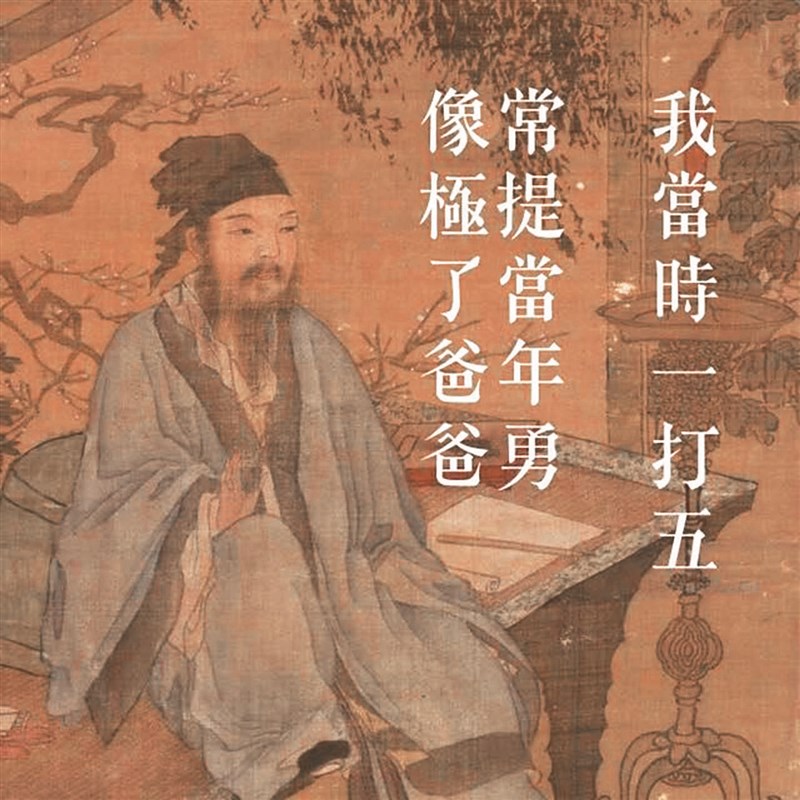 我當時一打五
常提當年勇
像極了爸爸